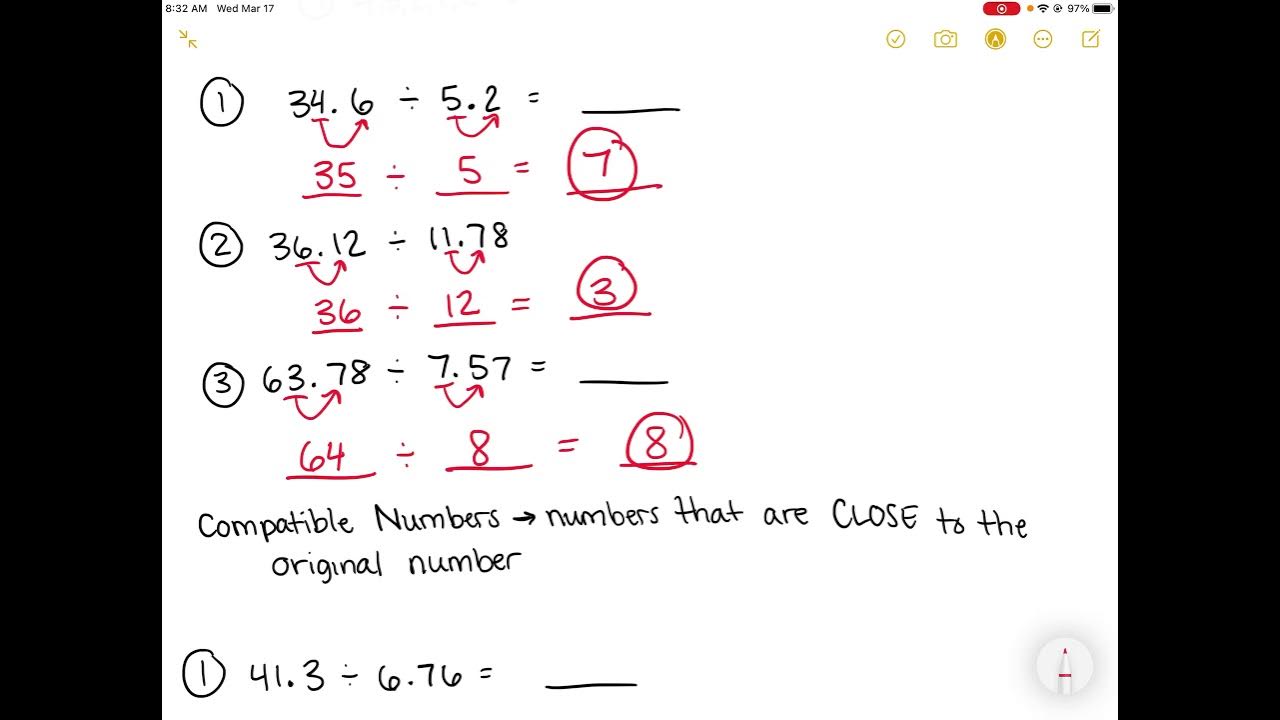 8:32 AM Wed Mar 17
97%
① 34.6 ÷ 5.2 = ____
35 ÷ 5 = 7
② 36.12 ÷ 11.78
36 ÷ 12 = 3
③ 63.78 ÷ 7.57 = ____
64 ÷ 8 = 8
Compatible Numbers → numbers that are CLOSE to the
original number
① 41.3 ÷ 6.76 = ____